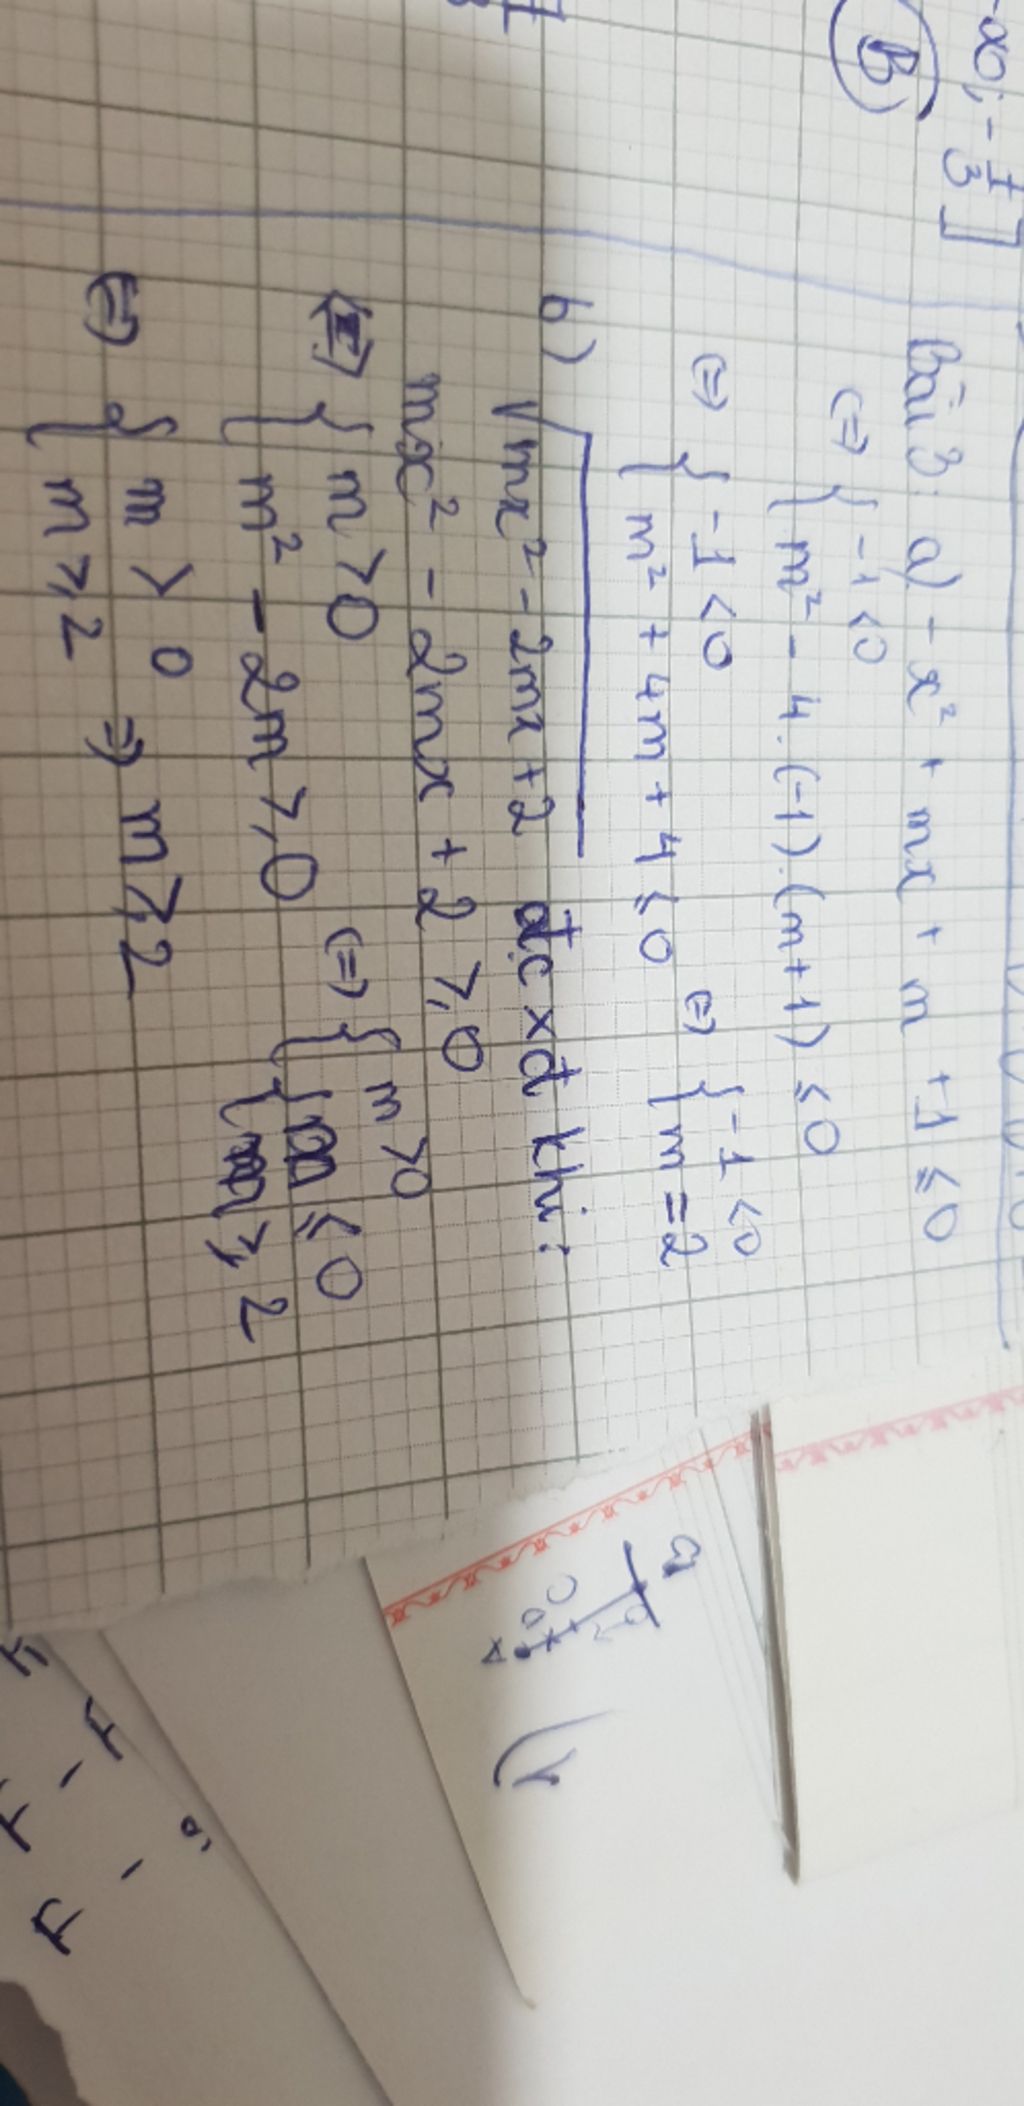 -∞; -1/3]
B
Bài 3: a) - x² + mx + m +1 ≤ 0
(=) { -1 <0
{ m² - 4.(-1).(m+1) ≤ 0
(=) { -1 <0
{ m² + 4m + 4 ≤ 0 (=) { -1 <0
{ m = 2
b) √mx² - 2mx + 2 đc xđ khi:
mx² - 2mx + 2 ≥ 0
<=> { m > 0
{ m² - 2m ≥ 0 (=) { m >0
{ ≤ 0
{ ≥ 2
(=) { m > 0
{ m ≥ 2 => m ≥ 2
a